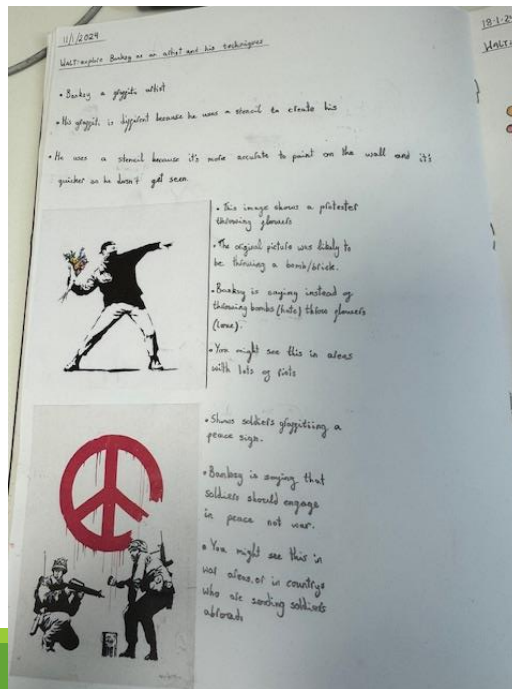 11/1/2024
WALT: explore Banksy as an artist and his techniques
• Banksy a graffiti artist
• His graffiti is different because he uses a stencil to create his
• He uses a stencil because it's more accurate to paint on the wall and it's
quicker so he dosn't get seen.
• This image shows a protester
throwing flowers
• The original picture was likely to
be throwing a bomb/brick.
• Banksy is saying instead of
throwing bombs (hate) throw flowers
(love).
• You might see this in areas
with lots of riots
• Shows soldiers graffitiing a
peace sign.
• Banksy is saying that
soldiers should engage
in peace not war.
• You might see this in
war areas or in countrys
who are sending soldiers
abroads
18-1-24
WALT: